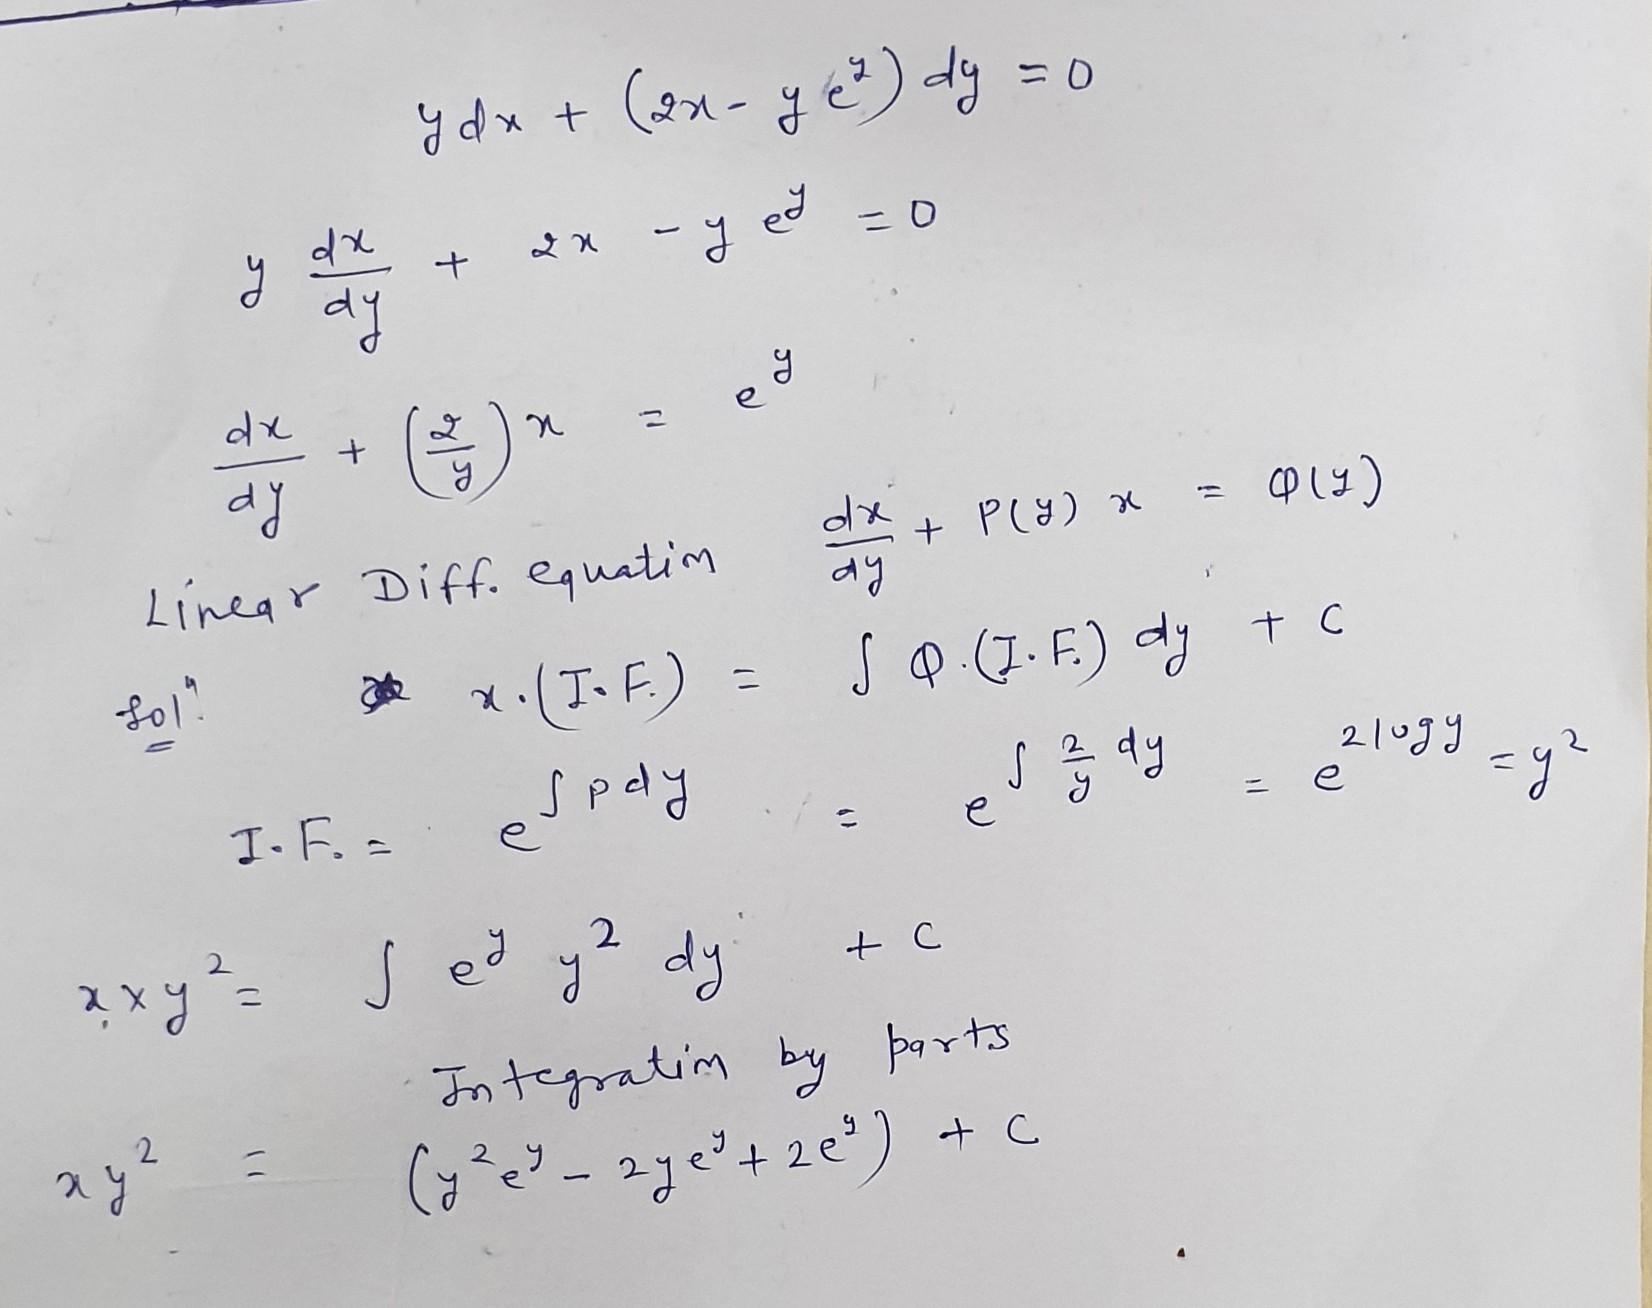 y dx + (2x - y e^y) dy = 0
y dx/dy + 2x - y e^y = 0
dx/dy + (2/y) x = e^y
Linear Diff. equation dx/dy + P(y) x = Q(y)
Solⁿ: x.(I.F.) = ∫ Q.(I.F.) dy + C
I.F. = e^∫P dy = e^∫ 2/y dy = e^2logy = y²
x × y² = ∫ e^y y² dy + C
Integration by parts
xy² = (y²e^y - 2ye^y + 2e^y) + C